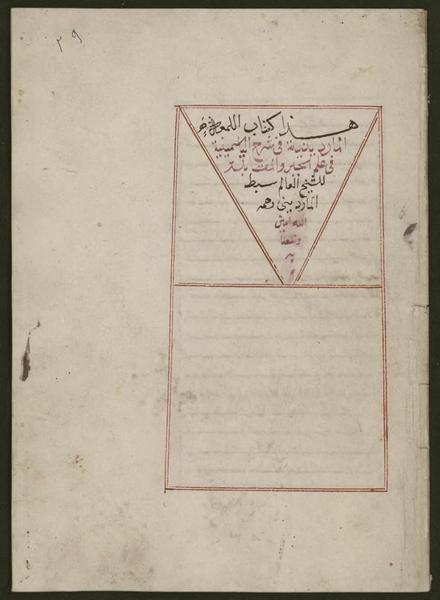 ٢٩
هذا كتاب اللمعة
الماردينية في شرح الياسمينية
في علم الجبر والمقابلة
للشيخ العالم سبط
المارديني رحمه
الله امين
ونفعنا
به
م